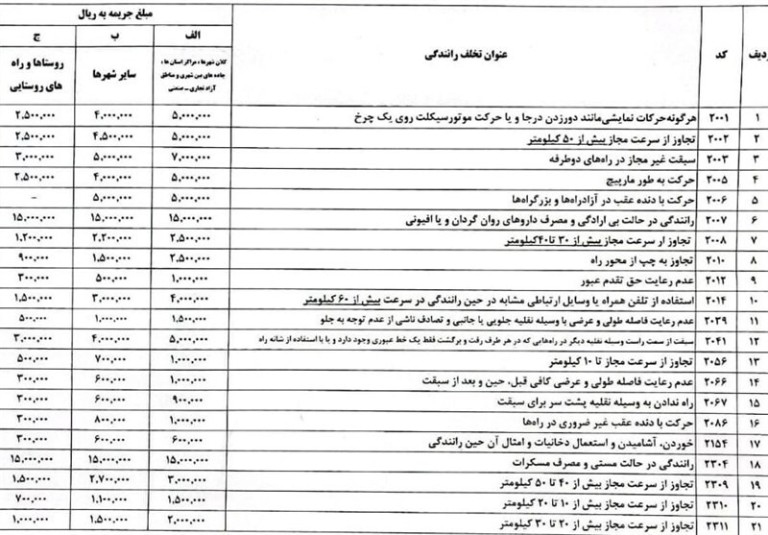 ردیف کد عنوان تخلف رانندگی مبلغ جریمه به ریال
الف ب ج
کلان شهرها، مراکز استان ها، جاده های بین شهری و مناطق آزاد تجاری - صنعتی سایر شهرها روستاها و راه های روستایی
۱ ۲۰۰۱ هرگونه حرکات نمایشی مانند دور زدن درجا و یا حرکت موتورسیکلت روی یک چرخ ۵,۰۰۰,۰۰۰ ۴,۰۰۰,۰۰۰ ۲,۵۰۰,۰۰۰
۲ ۲۰۰۲ تجاوز از سرعت مجاز بیش از ۵۰ کیلومتر ۵,۰۰۰,۰۰۰ ۴,۵۰۰,۰۰۰ ۲,۵۰۰,۰۰۰
۳ ۲۰۰۳ سبقت غیر مجاز در راه‌های دوطرفه ۷,۰۰۰,۰۰۰ ۵,۰۰۰,۰۰۰ ۳,۰۰۰,۰۰۰
۴ ۲۰۰۵ حرکت به طور مارپیچ ۵,۰۰۰,۰۰۰ ۴,۰۰۰,۰۰۰ ۲,۵۰۰,۰۰۰
۵ ۲۰۰۶ حرکت با دنده عقب در آزادراه‌ها و بزرگراه‌ها ۵,۰۰۰,۰۰۰ ۵,۰۰۰,۰۰۰ -
۶ ۲۰۰۷ رانندگی در حالت بی ارادگی و مصرف داروهای روان گردان و یا افیونی ۱۵,۰۰۰,۰۰۰ ۱۵,۰۰۰,۰۰۰ ۱۵,۰۰۰,۰۰۰
۷ ۲۰۰۸ تجاوز ار سرعت مجاز بیش از ۳۰ تا ۴۰ کیلومتر ۲,۵۰۰,۰۰۰ ۲,۲۰۰,۰۰۰ ۱,۲۰۰,۰۰۰
۸ ۲۰۱۰ تجاوز به چپ از محور راه ۲,۵۰۰,۰۰۰ ۱,۵۰۰,۰۰۰ ۹۰۰,۰۰۰
۹ ۲۰۱۲ عدم رعایت حق تقدم عبور ۱,۰۰۰,۰۰۰ ۵۰۰,۰۰۰ ۳۰۰,۰۰۰
۱۰ ۲۰۱۴ استفاده از تلفن همراه یا وسایل ارتباطی مشابه در حین رانندگی در سرعت بیش از ۶۰ کیلومتر ۴,۰۰۰,۰۰۰ ۳,۰۰۰,۰۰۰ ۱,۵۰۰,۰۰۰
۱۱ ۲۰۳۹ عدم رعایت فاصله طولی و عرضی با وسیله نقلیه جلویی یا جانبی و تصادف ناشی از عدم توجه به جلو ۱,۵۰۰,۰۰۰ ۱,۰۰۰,۰۰۰ ۵۰۰,۰۰۰
۱۲ ۲۰۴۱ سبقت از سمت راست وسیله نقلیه دیگر در راه‌هایی که در هر طرف رفت و برگشت فقط یک خط عبوری وجود دارد و یا با استفاده از شانه راه ۵,۰۰۰,۰۰۰ ۴,۰۰۰,۰۰۰ ۳,۰۰۰,۰۰۰
۱۳ ۲۰۵۶ تجاوز از سرعت مجاز تا ۱۰ کیلومتر ۱,۰۰۰,۰۰۰ ۷۰۰,۰۰۰ ۵۰۰,۰۰۰
۱۴ ۲۰۶۶ عدم رعایت فاصله طولی و عرضی کافی قبل، حین و بعد از سبقت ۱,۰۰۰,۰۰۰ ۶۰۰,۰۰۰ ۳۰۰,۰۰۰
۱۵ ۲۰۶۷ راه ندادن به وسیله نقلیه پشت سر برای سبقت ۹۰۰,۰۰۰ ۶۰۰,۰۰۰ ۳۰۰,۰۰۰
۱۶ ۲۰۸۶ حرکت با دنده عقب غیر ضروری در راه‌ها ۱,۰۰۰,۰۰۰ ۸۰۰,۰۰۰ ۳۰۰,۰۰۰
۱۷ ۲۱۵۴ خوردن، آشامیدن و استعمال دخانیات و امثال آن حین رانندگی ۶۰۰,۰۰۰ ۶۰۰,۰۰۰ ۳۰۰,۰۰۰
۱۸ ۲۳۰۴ رانندگی در حالت مستی و مصرف مسکرات ۱۵,۰۰۰,۰۰۰ ۱۵,۰۰۰,۰۰۰ ۱۵,۰۰۰,۰۰۰
۱۹ ۲۳۰۹ تجاوز از سرعت مجاز بیش از ۴۰ تا ۵۰ کیلومتر ۳,۰۰۰,۰۰۰ ۲,۷۰۰,۰۰۰ ۱,۵۰۰,۰۰۰
۲۰ ۲۳۱۰ تجاوز از سرعت مجاز بیش از ۱۰ تا ۲۰ کیلومتر ۱,۵۰۰,۰۰۰ ۱,۱۰۰,۰۰۰ ۷۰۰,۰۰۰
۲۱ ۲۳۱۱ تجاوز از سرعت مجاز بیش از ۲۰ تا ۳۰ کیلومتر ۲,۰۰۰,۰۰۰ ۱,۵۰۰,۰۰۰ ۱,۰۰۰,۰۰۰